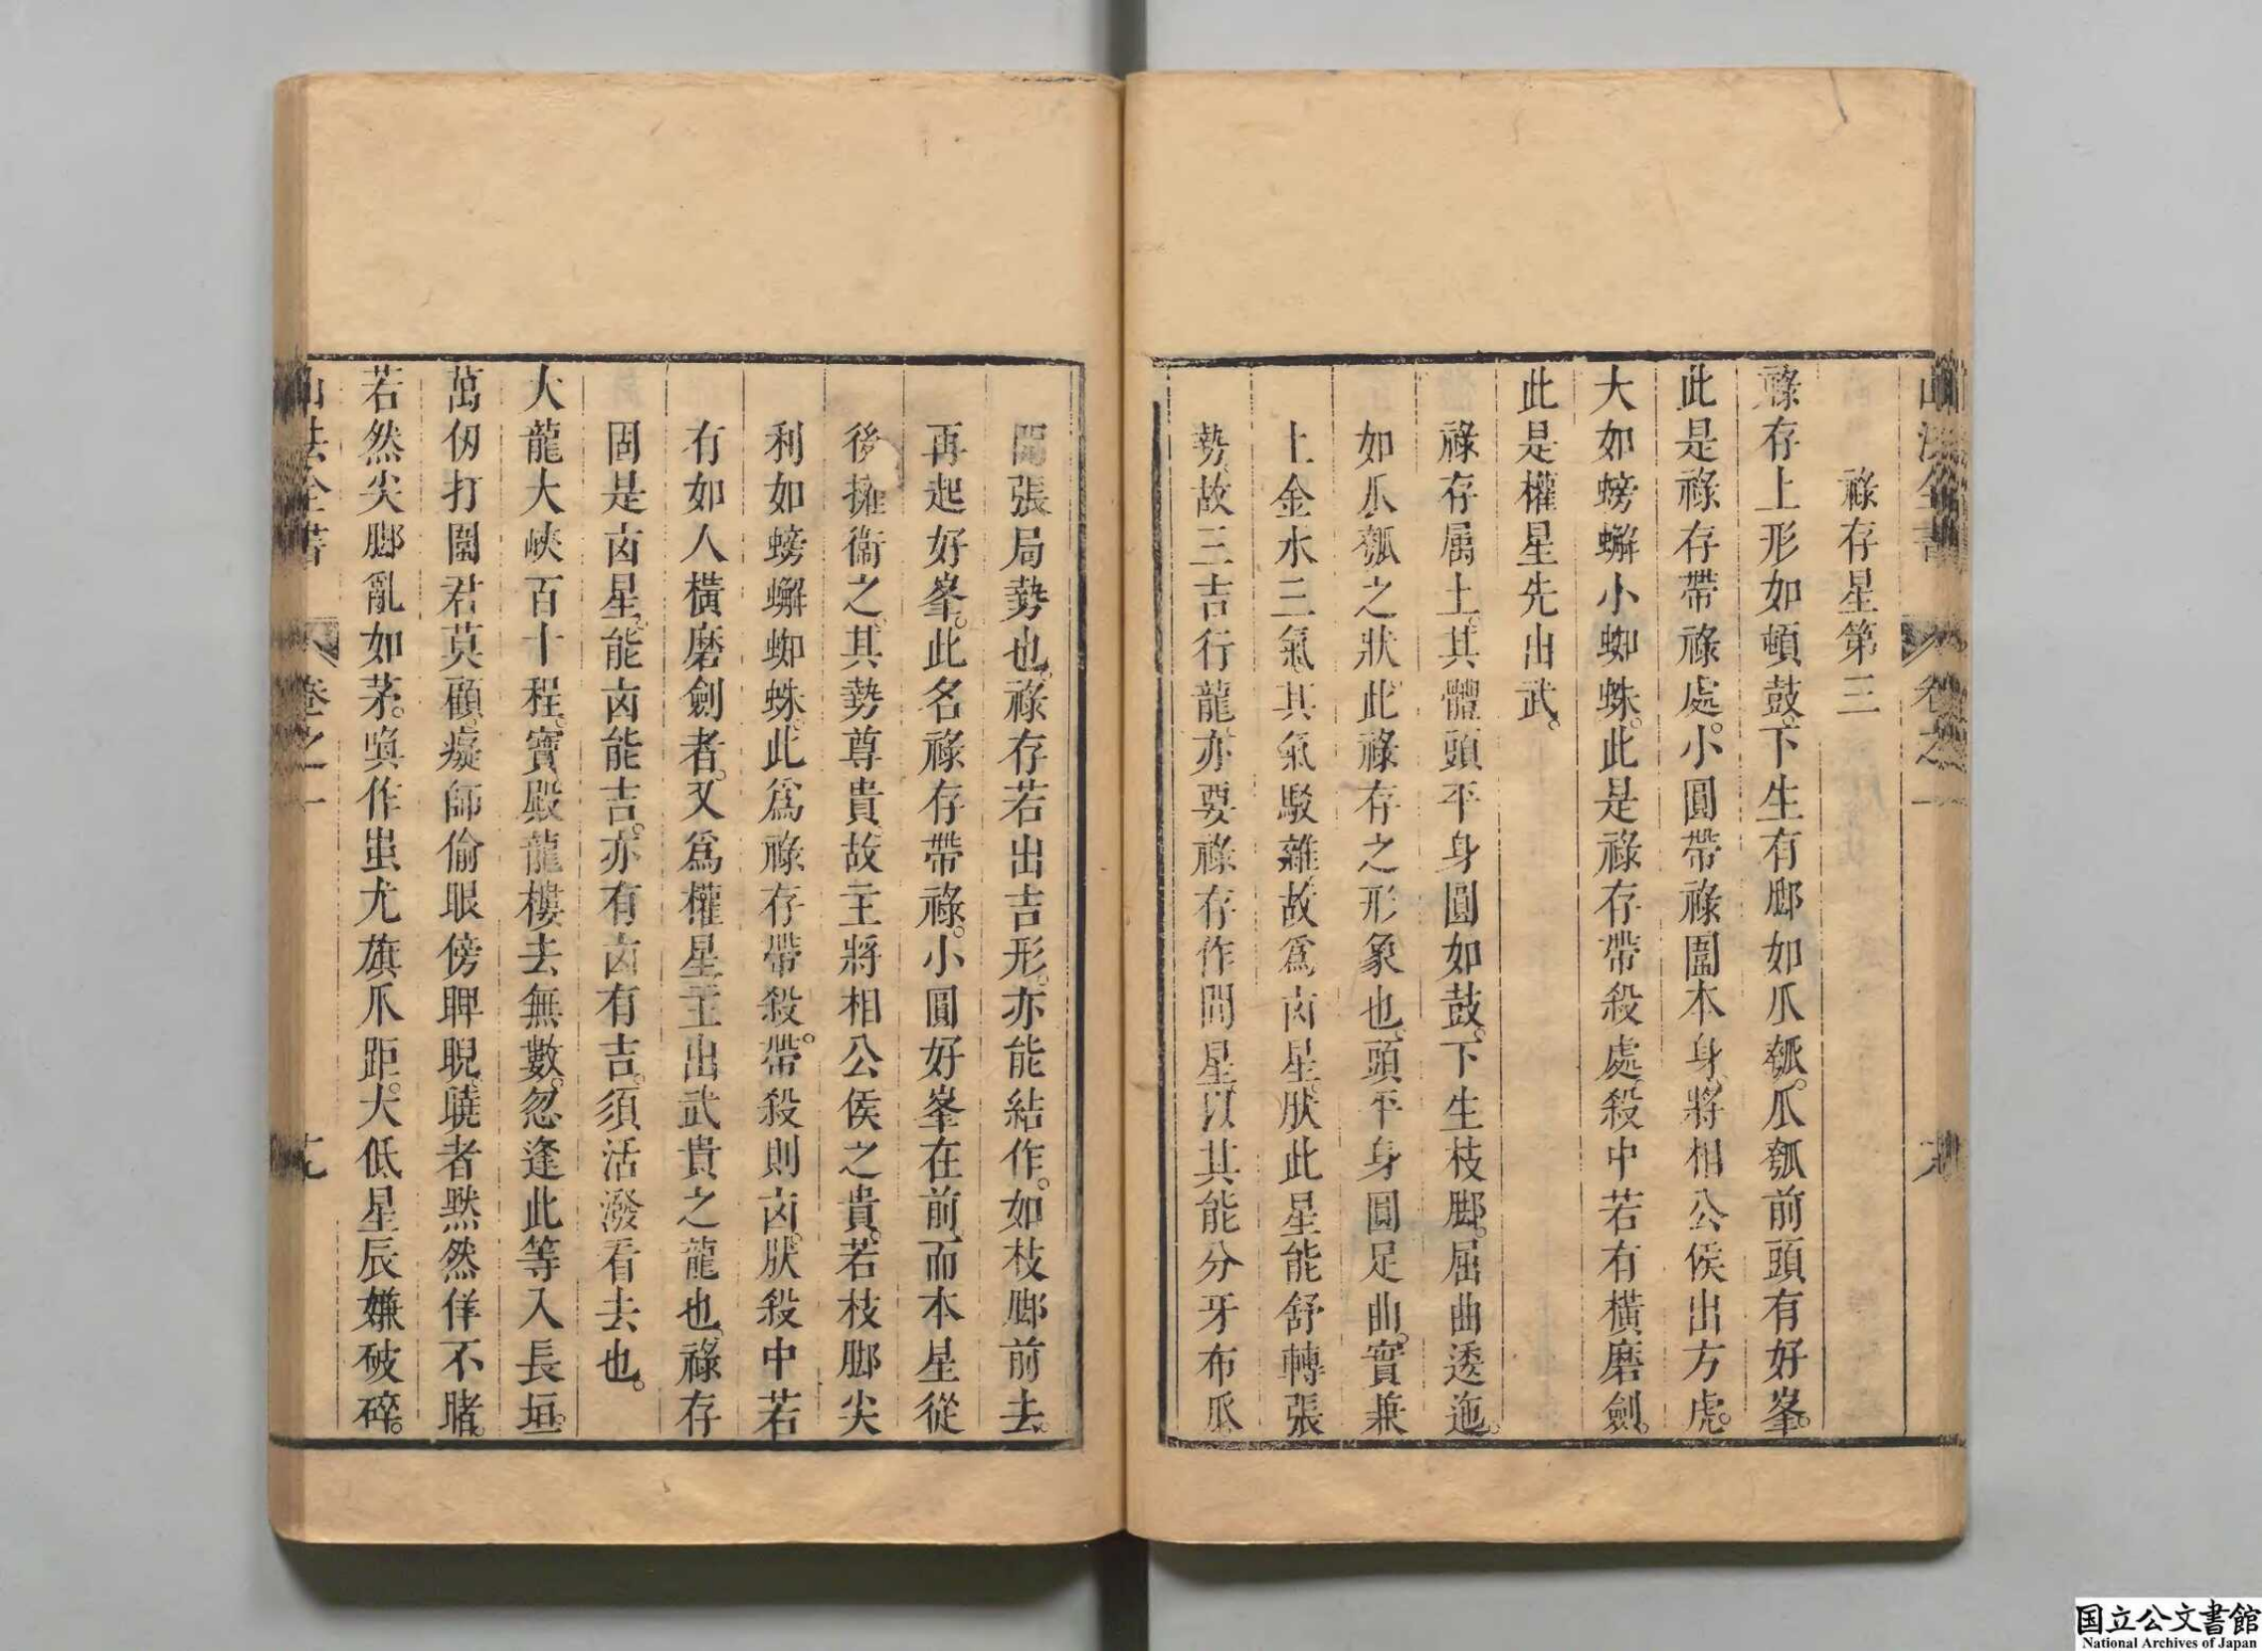 祿存星第三
祿存上形如頓鼓。下生有脚如爪瓠。爪瓠前頭有好峯。
此是祿存帶祿處。小圓帶祿圍本身。將相公侯出方虎。
大如螃蠏小蜘蛛。此是祿存帶殺處。殺中若有橫磨劍。
此是權星先出武。
祿存属土。其體頭平身圓如鼓。下生枝脚。屈曲逶迤。
如爪瓠之狀。此祿存之形象也。頭平身圓足曲。實兼
土金水三氣。其氣駁雜。故爲卤星。肰此星能舒轉張
勢。故三吉行龍。亦要祿存作間星。以其能分牙布爪
張局勢也。祿存若出吉形。亦能結作。如枝脚前去。
再起好峯。此名祿存帶祿。小圓好峯在前。而本星從
後擁衞之。其勢尊貴。故主將相公侯之貴。若枝脚尖
利如螃蠏蜘蛛。此爲祿存帶殺。帶殺則卤。肰殺中若
有如人橫磨劍者。又爲權星。主出武貴之龍也。祿存
固是卤星。能卤能吉。亦有卤有吉。須活潑看去也。
大龍大峽百十程。寶殿龍樓去無數。忽逢此等入長垣。
萬仞打圍君莫顧。癡師偷眼傍睥睨。曉者黙然佯不睹。
若然尖脚亂如茅。喚作蚩尤旗爪距。大低星辰嫌破碎。
山法全書
卷之一
国立公文書館
National Archives of Japan